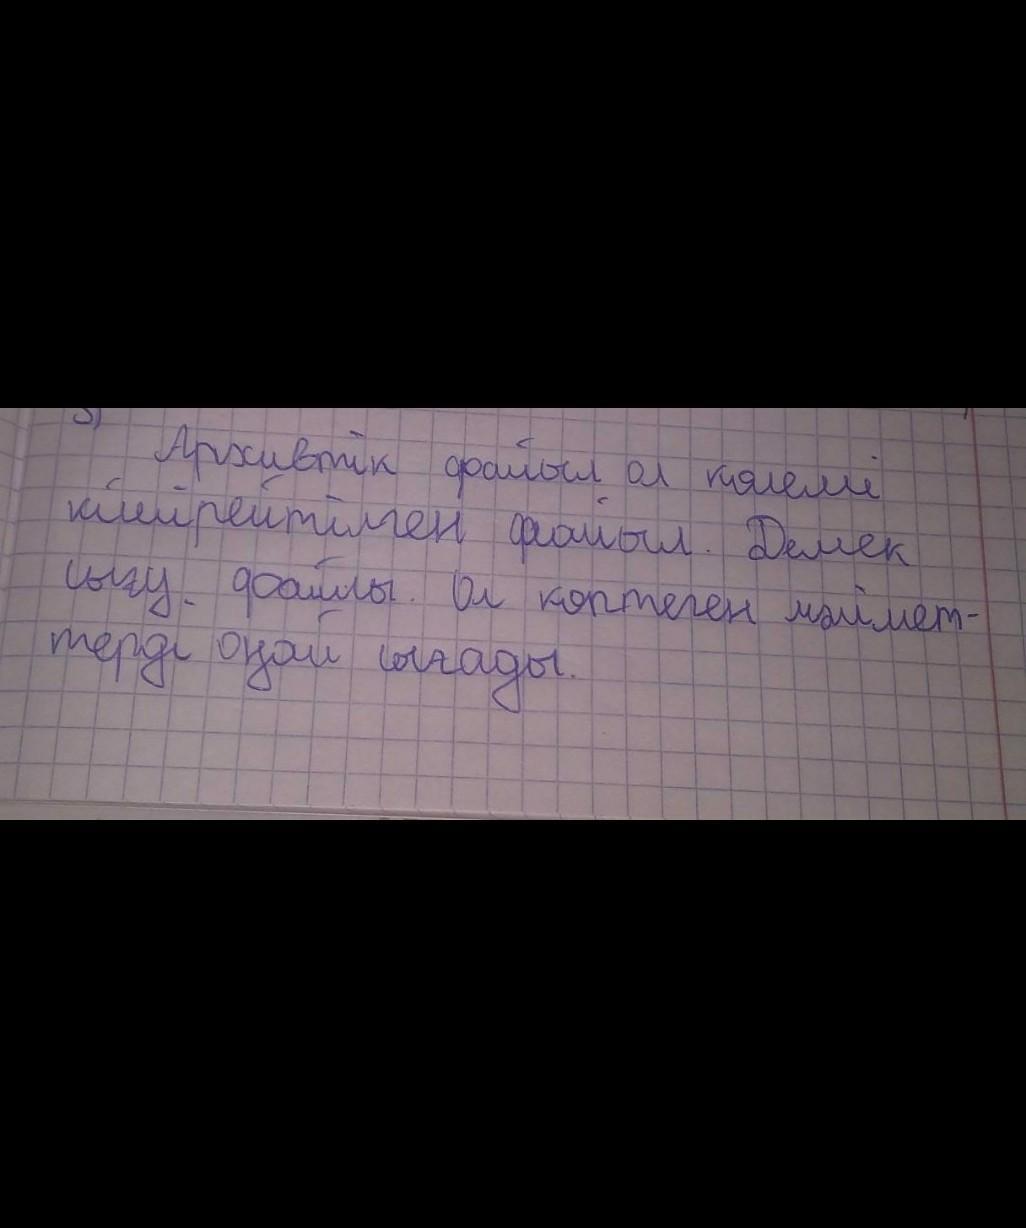 Архивтік файыл ол көлемі
кішірейтілген файыл. Демек
сығу. файлы. Ол көптеген мәлімет-
терді оңай сығады.